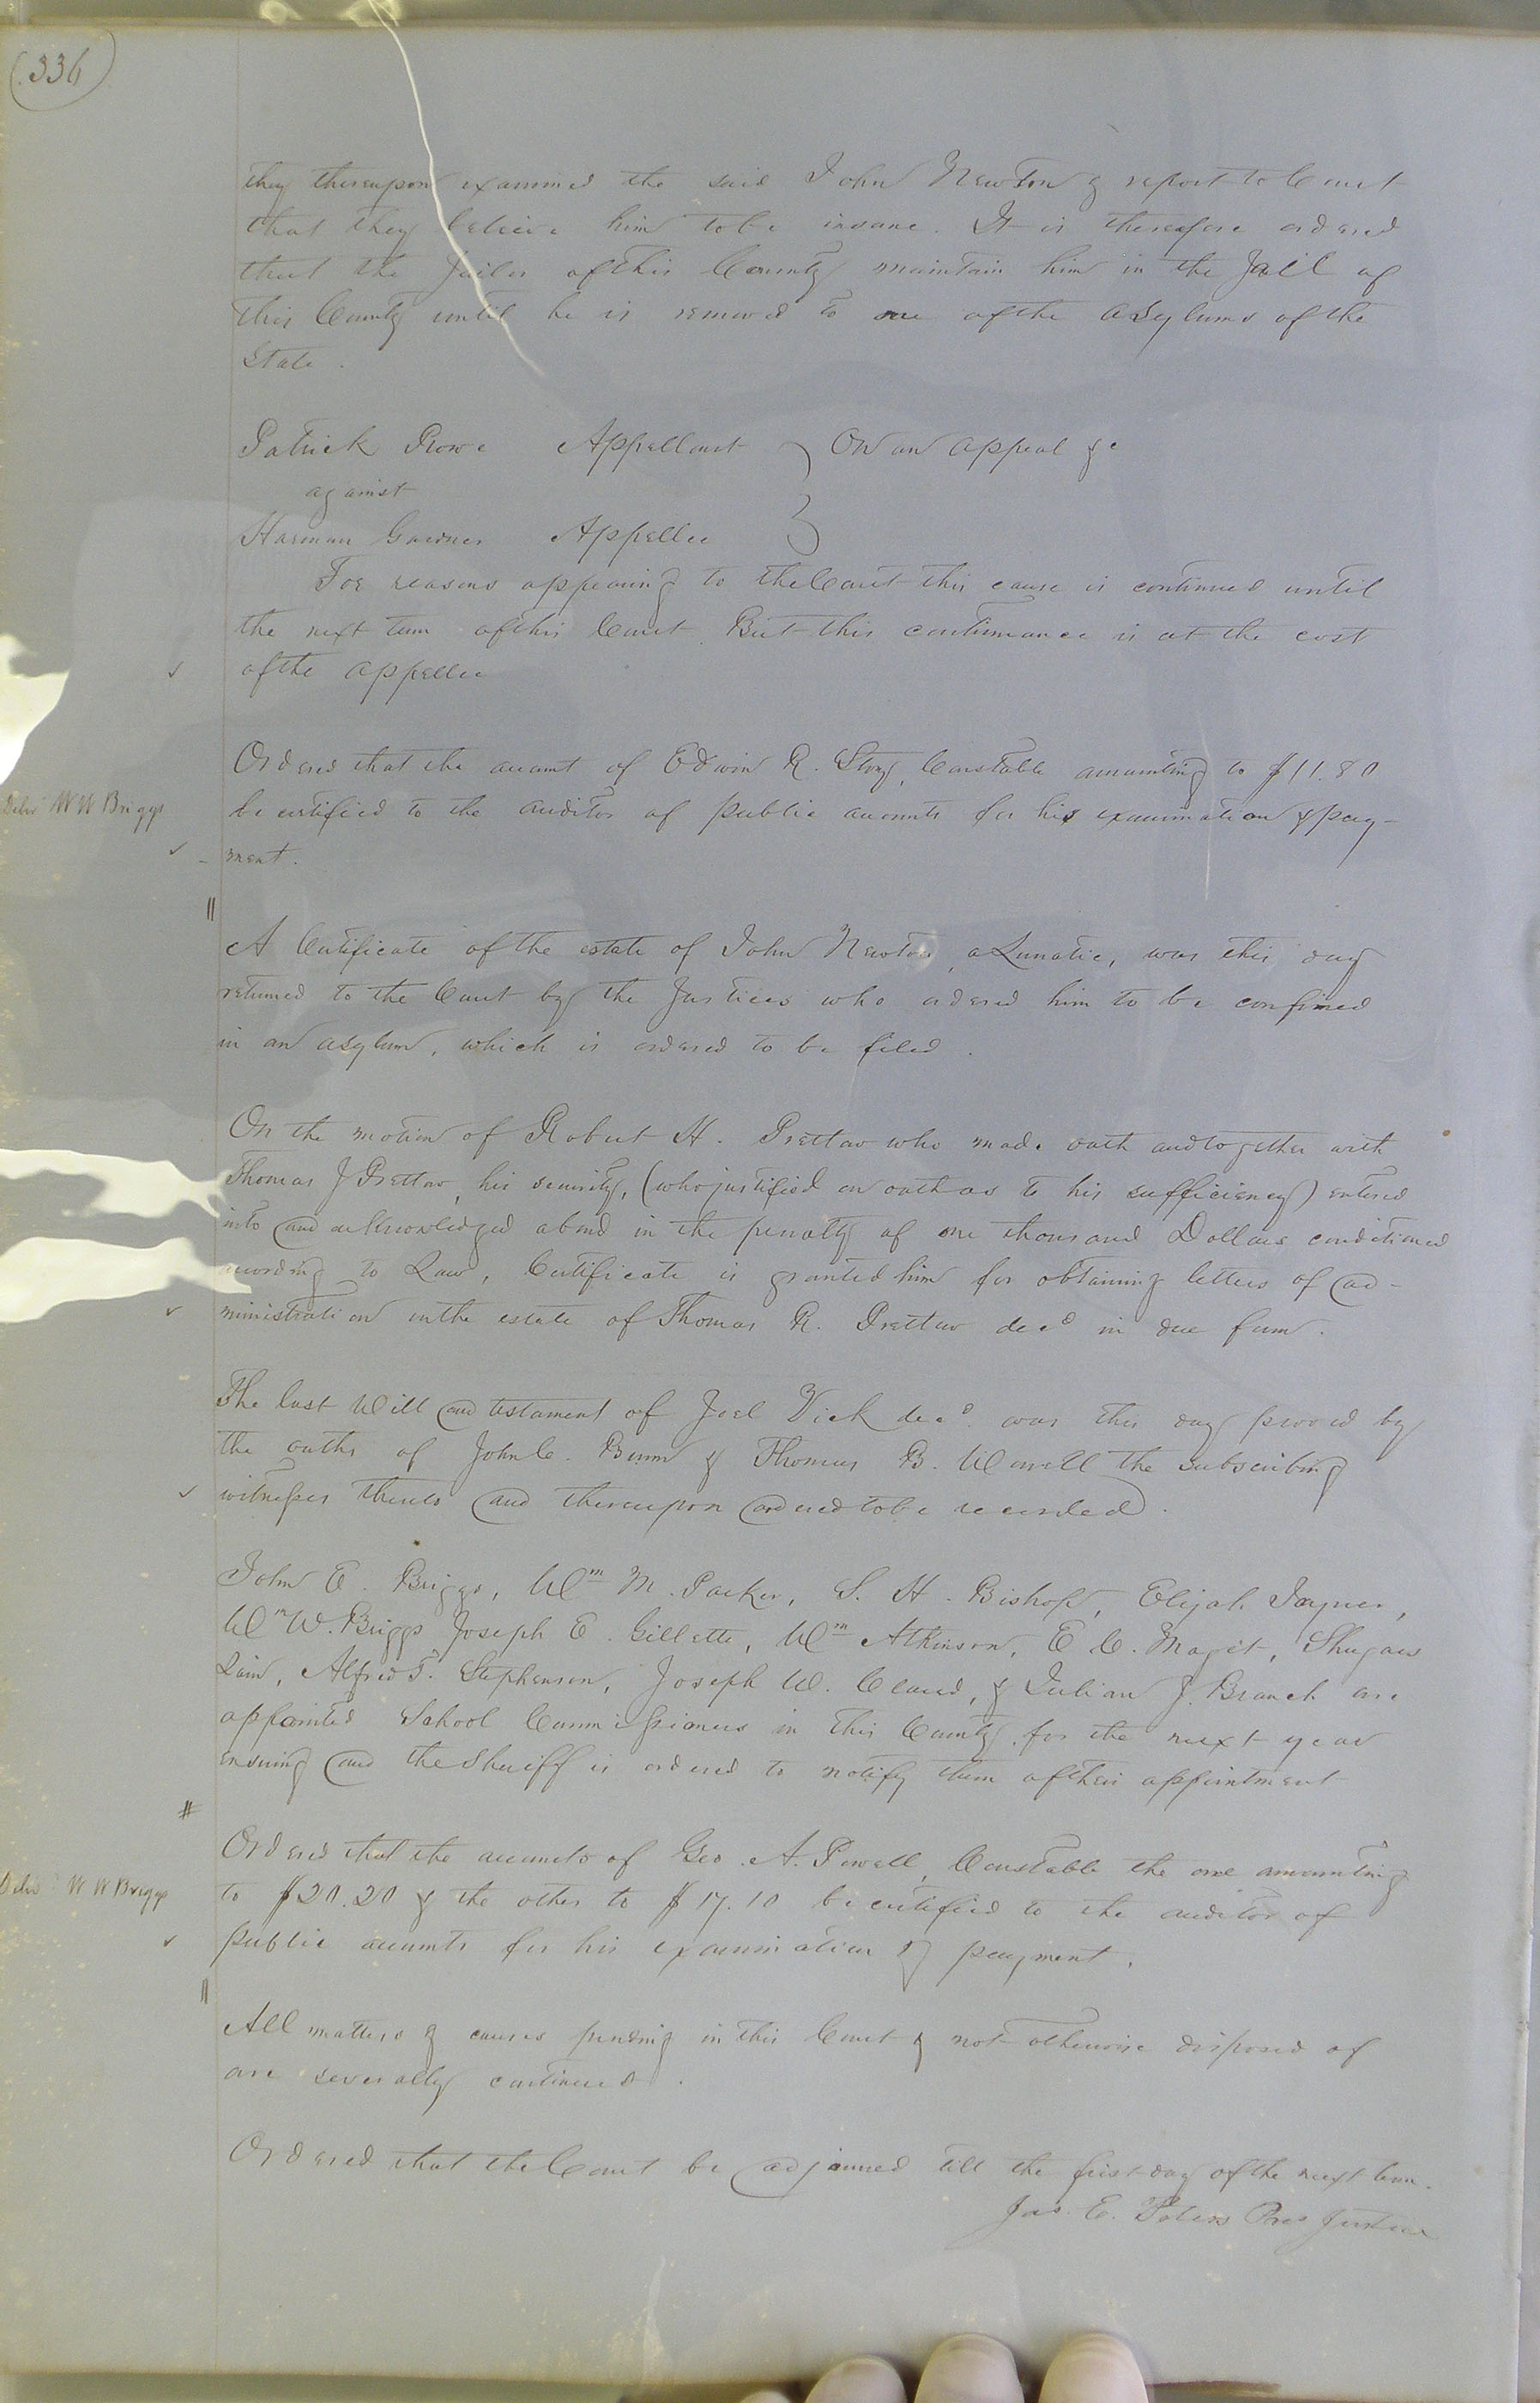 336
they thereupon examined the said John Newton & report to Court
that they believe him to be insane. It is therefore ordered
that the Jailor of this County maintain him in the Jail of
this County until he is removed to one of the Asylums of the
State.
Patrick Rowe Appellant } On an appeal &c
against
Harman Gardner Appellee }
For reasons appearing to the Court this cause is continued until
the next term of this Court. But this continuance is at the cost
of the appellee
Ordered that the account of Edwin R. Story, Constable amounting to $11.80
Delivd W W Briggs
be certified to the auditor of public accounts for his examination & pay-
ment.
A Certificate of the estate of John Newton, a Lunatic, was this day
returned to the Court by the Justices who ordered him to be confined
in an asylum, which is ordered to be filed.
On the motion of Robert H. Prettow who made oath and together with
Thomas J Prettow, his security, (who justified on oath as to his sufficiency) entered
into and acknowledged a bond in the penalty of one thousand Dollars conditioned
according to Law, Certificate is granted him for obtaining letters of ad-
ministration on the estate of Thomas R. Prettow decd in due form.
The last Will and testament of Joel Vick decd. was this day proved by
the oaths of John C. Bunn & Thomas B. Worrell the subscribing
witnesses thereto and thereupon ordered to be recorded.
John E. Briggs, Wm M. Parker, S. H. Bishop, Elijah Joyner,
Wm W. Briggs Joseph E. Gillette, Wm Atkinson, E. C. Maget, Shugars
Lain, Alfred T. Stephenson, Joseph W. Claud, & Julian J. Branch are
appointed School Commissioners in this County for the next year
ensuing and the Sheriff is ordered to notify them of their appointment
Ordered that the accounts of Geo. A. Powell, Constable the one amounting
Delivd W W Briggs
to $20.20 & the other to $17.10 be certified to the auditor of
public accounts for his examination & payment.
All matters & causes pending in this Court & not otherwise disposed of
are severally continued.
Ordered that the Court be adjourned till the first day of the next term.
Jas. E. Peters Pres Justice